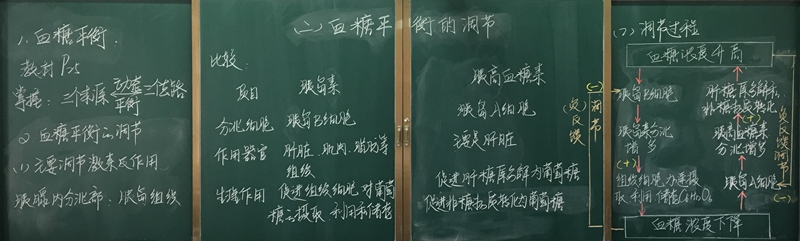 (二) 血糖平衡的调节
1. 血糖平衡:
教材 P25
掌握: 三个来源 动态平衡 三个去路
2 血糖平衡的调节
(1) 主要调节激素及作用
胰腺内分泌部: 胰岛组织
比较:
项目 胰岛素 胰高血糖素
分泌细胞 胰岛B细胞 胰岛A细胞
作用器官 肝脏、肌肉、脂肪等组织 主要是肝脏
生理作用 促进组织细胞对葡萄糖的摄取利用和储存
促进肝糖原分解为葡萄糖
促进非糖物质转化为葡萄糖
(2) 调节过程
血糖浓度升高
胰岛B细胞
(+)
胰岛素分泌增多
(+)
组织细胞加速摄取利用储存C₆H₁₂O₆
血糖浓度下降
胰岛A细胞
胰高血糖素分泌增多
(+)
肝糖原分解,非糖物质转化
(一)
负反馈调节
(一)
负反馈调节